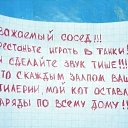 важаемый сосед!!!
рестаньте играть в танки!
и сделайте звук тише!!!
то с каждым залпом ваш
тилерии, мой кот оставл
аряды по всему дому!!